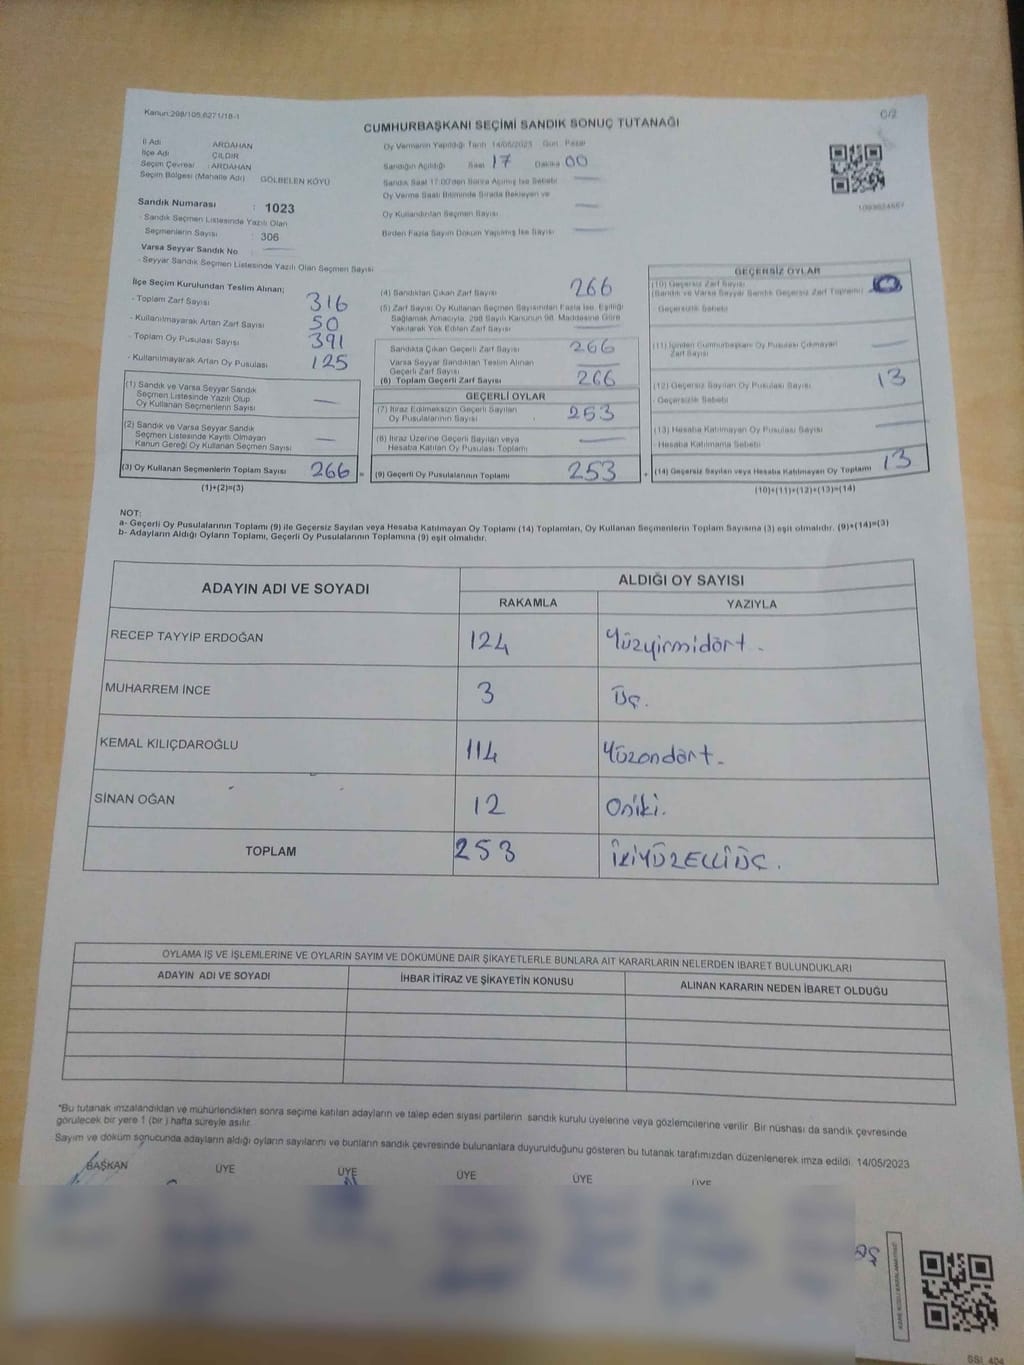 Kanun:298/105,6271/18-1
C/2
CUMHURBAŞKANI SEÇİMİ SANDIK SONUÇ TUTANAĞI
İl Adı ARDAHAN
İlçe Adı ÇILDIR
Seçim Çevresi : ARDAHAN
Seçim Bölgesi (Mahalle Adı) GÖLBELEN KÖYÜ
Sandık Numarası : 1023
- Sandık Seçmen Listesinde Yazılı Olan
Seçmenlerin Sayısı : 306
Varsa Seyyar Sandık No
- Seyyar Sandık Seçmen Listesinde Yazılı Olan Seçmen Sayısı
Oy Vermenin Yapıldığı Tarih 14/05/2023 Gün Pazar
Sandığın Açıldığı Saat 17 Dakika 00
Sandık Saat 17:00'den Sonra Açılmış İse Sebebi
Oy Verme Saati Bitiminde Sırada Bekleyen ve
Oy Kullandırılan Seçmen Sayısı
Birden Fazla Sayım Döküm Yapılmış İse Sayısı
İlçe Seçim Kurulundan Teslim Alınan;
- Toplam Zarf Sayısı 316
- Kullanılmayarak Artan Zarf Sayısı 50
- Toplam Oy Pusulası Sayısı 391
- Kullanılmayarak Artan Oy Pusulası 125
(1) Sandık ve Varsa Seyyar Sandık
Seçmen Listesinde Yazılı Olup
Oy Kullanan Seçmenlerin Sayısı —
(2) Sandık ve Varsa Seyyar Sandık
Seçmen Listesinde Kayıtlı Olmayan
Kanun Gereği Oy Kullanan Seçmen Sayısı —
(3) Oy Kullanan Seçmenlerin Toplam Sayısı 266 =
(1)+(2)=(3)
(4) Sandıktan Çıkan Zarf Sayısı 266
(5) Zarf Sayısı Oy Kullanan Seçmen Sayısından Fazla İse, Eşitliği
Sağlamak Amacıyla, 298 Sayılı Kanunun 98. Maddesine Göre
Yakılarak Yok Edilen Zarf Sayısı
Sandıkta Çıkan Geçerli Zarf Sayısı 266
Varsa Seyyar Sandıktan Teslim Alınan
Geçerli Zarf Sayısı
(6) Toplam Geçerli Zarf Sayısı 266
GEÇERLİ OYLAR
(7) İtiraz Edilmeksizin Geçerli Sayılan
Oy Pusulalarının Sayısı 253
(8) İtiraz Üzerine Geçerli Sayılan veya
Hesaba Katılan Oy Pusulası Toplamı —
(9) Geçerli Oy Pusulalarının Toplamı 253 +
GEÇERSİZ OYLAR
(10) Geçersiz Zarf Sayısı
(Sandık ve Varsa Seyyar Sandık Geçersiz Zarf Toplamı)
- Geçersizlik Sebebi
(11) İçinden Cumhurbaşkanı Oy Pusulası Çıkmayan
Zarf Sayısı —
(12) Geçersiz Sayılan Oy Pusulası Sayısı 13
- Geçersizlik Sebebi
(13) Hesaba Katılmayan Oy Pusulası Sayısı —
- Hesaba Katılmama Sebebi
(14) Geçersiz Sayılan veya Hesaba Katılmayan Oy Toplamı 13
(10)+(11)+(12)+(13)=(14)
NOT:
a- Geçerli Oy Pusulalarının Toplamı (9) ile Geçersiz Sayılan veya Hesaba Katılmayan Oy Toplamı (14) Toplamları, Oy Kullanan Seçmenlerin Toplam Sayısına (3) eşit olmalıdır. (9)+(14)=(3)
b- Adayların Aldığı Oyların Toplamı, Geçerli Oy Pusulalarının Toplamına (9) eşit olmalıdır.
ADAYIN ADI VE SOYADI
ALDIĞI OY SAYISI
RAKAMLA YAZIYLA
RECEP TAYYİP ERDOĞAN 124 Yüzyirmidört.
MUHARREM İNCE 3 Üç.
KEMAL KILIÇDAROĞLU 114 Yüzondört.
SİNAN OĞAN 12 Oniki.
TOPLAM 253 İKİYÜZELLİÜÇ.
OYLAMA İŞ VE İŞLEMLERİNE VE OYLARIN SAYIM VE DÖKÜMÜNE DAİR ŞİKAYETLERLE BUNLARA AİT KARARLARIN NELERDEN İBARET BULUNDUKLARI
ADAYIN ADI VE SOYADI
İHBAR İTİRAZ VE ŞİKAYETİN KONUSU
ALINAN KARARIN NEDEN İBARET OLDUĞU
*Bu tutanak imzalandıktan ve mühürlendikten sonra seçime katılan adayların ve talep eden siyasi partilerin sandık kurulu üyelerine veya gözlemcilerine verilir. Bir nüshası da sandık çevresinde
görülecek bir yere 1 (bir ) hafta süreyle asılır.
Sayım ve döküm sonucunda adayların aldığı oyların sayılarını ve bunların sandık çevresinde bulunanlara duyurulduğunu gösteren bu tutanak tarafımızdan düzenlenerek imza edildi. 14/05/2023
BAŞKAN ÜYE ÜYE ÜYE ÜYE ÜYE